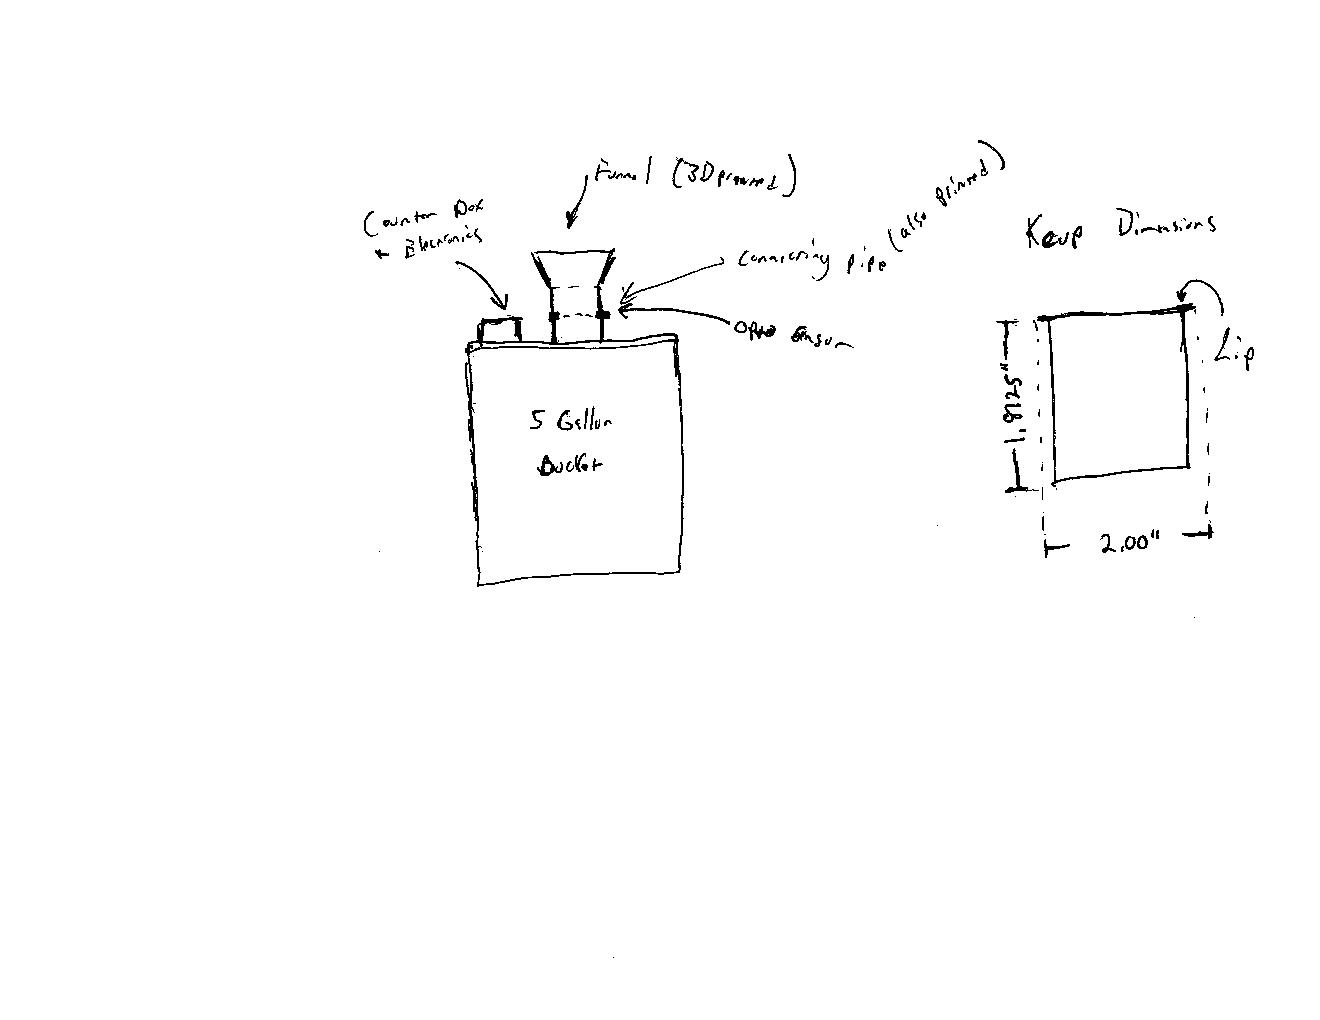 Funnel (3D printed)
Counter Box
+ Electronics
Connecting pipe (also printed)
Opto Sensor
5 Gallon
Bucket
Kcup Dimensions
Lip
1.8125"
2.00"